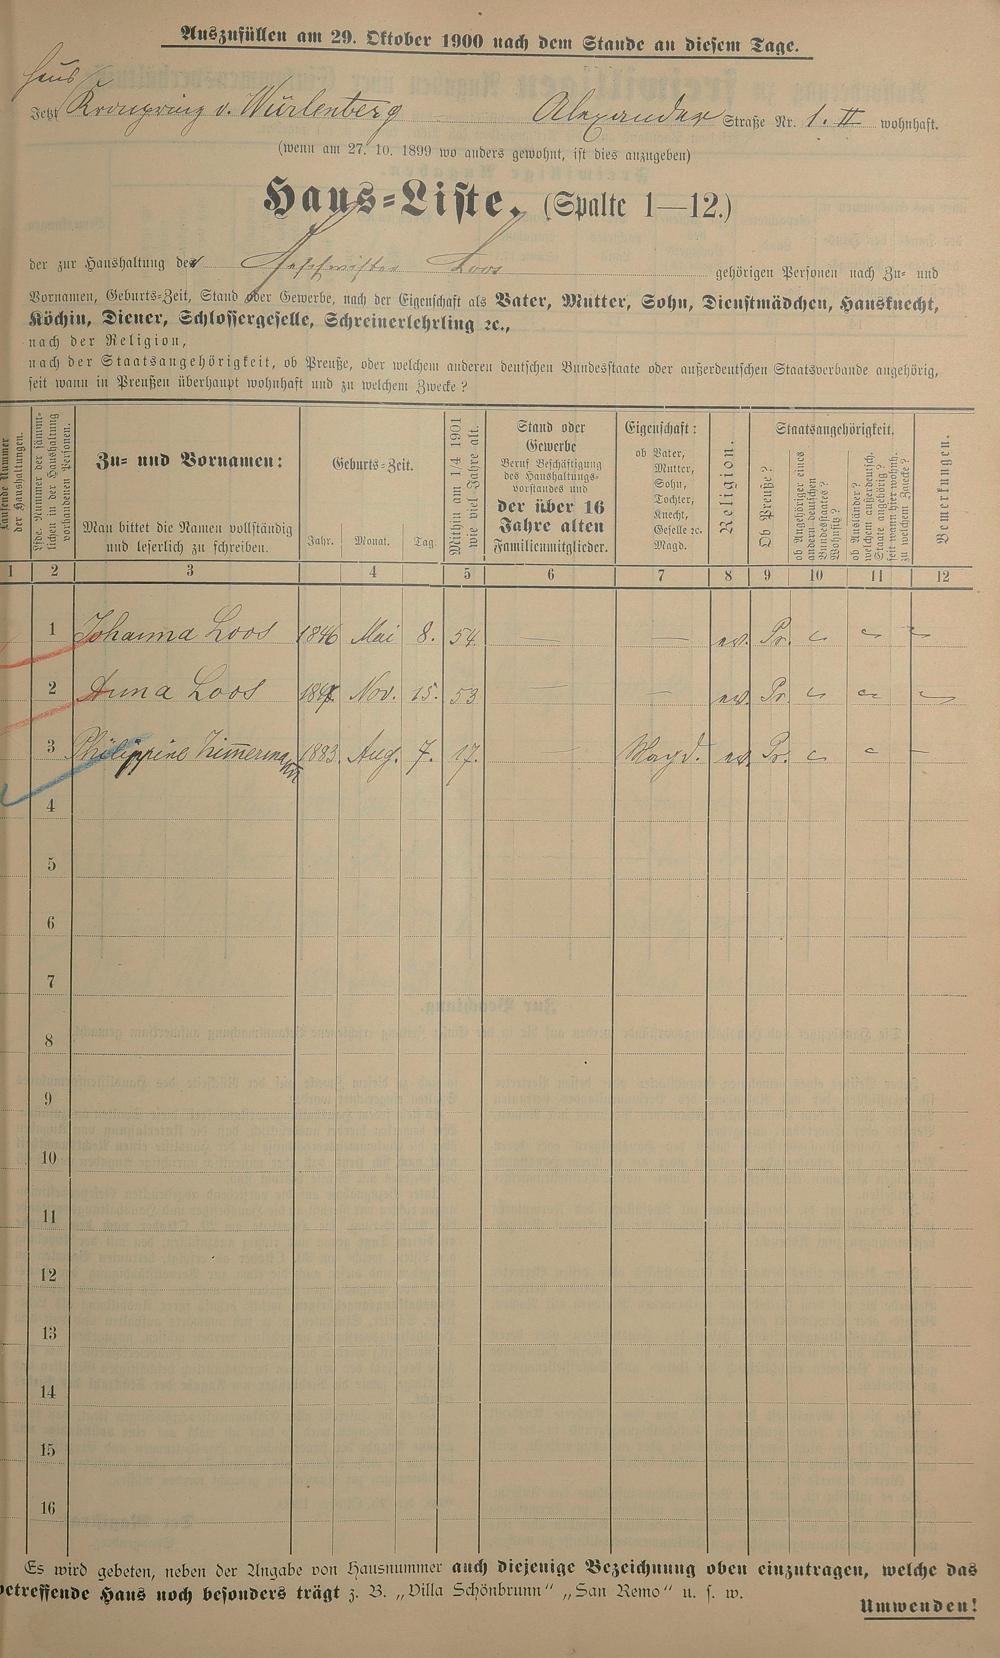 Auszufüllen am 29. Oktober 1900 nach dem Stande an diesem Tage.
Haus
Jetzt Kronprinz v. Würtenberg Alexander Straße Nr. 1. II wohnhaft.
(wenn am 27. 10. 1899 wo anders gewohnt, ist dies anzugeben)
Haus=Liste. (Spalte 1—12.)
der zur Haushaltung der Geschwister Loos gehörigen Personen nach Zu= und
Vornamen, Geburts=Zeit, Stand oder Gewerbe, nach der Eigenschaft als Vater, Mutter, Sohn, Dienstmädchen, Hausknecht,
Köchin, Diener, Schlossergeselle, Schreinerlehrling ꝛc.,
nach der Religion,
nach der Staatsangehörigkeit, ob Preuße, oder welchem anderen deutschen Bundesstaate oder außerdeutschen Staatsverbande angehörig,
seit wann in Preußen überhaupt wohnhaft und zu welchem Zwecke?
Laufende Nummer
der Haushaltungen.
Lfde. Nummer der sämmt=
lichen in der Haushaltung
vorhandenen Personen.
Zu= und Vornamen:
Man bittet die Namen vollständig
und leserlich zu schreiben.
Geburts=Zeit.
Jahr. Monat. Tag.
Mithin am 1/4 1901
wie viel Jahre alt.
Stand oder
Gewerbe
Beruf Beschäftigung
des Haushaltungs=
vorstandes und
der über 16
Jahre alten
Familienmitglieder.
Eigenschaft:
ob Vater,
Mutter,
Sohn,
Tochter,
Knecht,
Geselle ꝛc.
Magd.
Religion.
Staatsangehörigkeit.
Ob Preuße?
ob Angehöriger eines
andern deutschen
Bundesstaates?
Wohnsitz?
ob Ausländer?
welchem außerdeutsch.
Staate angehörig?
seit wann hier wohnh.
zu welchem Zwecke?
Bemerkungen.
1 2 3 4 5 6 7 8 9 10 11 12
1 Johanna Loos 1846 Mai 8. 54. — — ev. Pr.
2 Anna Loos 1847. Nov. 15. 53 — — ev. Pr.
3 Philippine Zimmermann 1883. Aug. 7. 17. Magd. ev. Pr.
4
5
6
7
8
9
10
11
12
13
14
15
16
Es wird gebeten, neben der Angabe von Hausnummer auch diejenige Bezeichnung oben einzutragen, welche das
betreffende Haus noch besonders trägt z. B. „Villa Schönbrunn“ „San Remo“ u. s. w.
Umwenden!